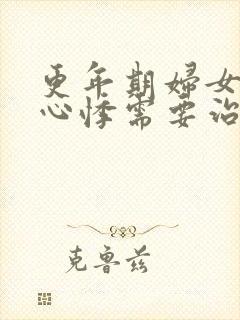 更年期妇女
心悸需要治
克鲁兹